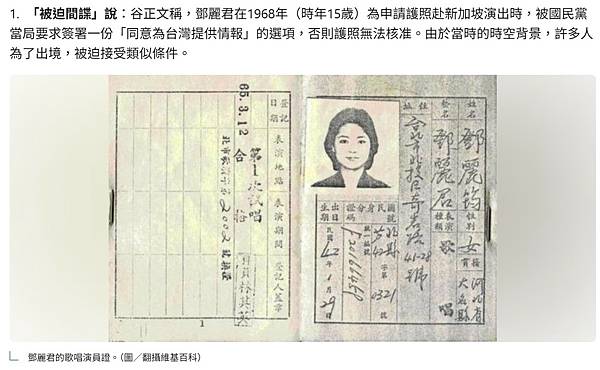 1. 「被迫間諜」說：谷正文稱，鄧麗君在1968年（時年15歲）為申請護照赴新加坡演出時，被國民黨
當局要求簽署一份「同意為台灣提供情報」的選項，否則護照無法核准。由於當時的時空背景，許多人
為了出境，被迫接受類似條件。
姓名 鄧麗筠 性別 女 籍貫 河北省大名縣
藝名 鄧麗君 表演種類 歌唱
住址
國民身分證號碼
出生日期 民國42年1月29
登記日期 65.3.12
表演地點 第1次試唱
合格
表演期間
登記人蓋章
1
鄧麗君的歌唱演員證。（圖／翻攝維基百科）